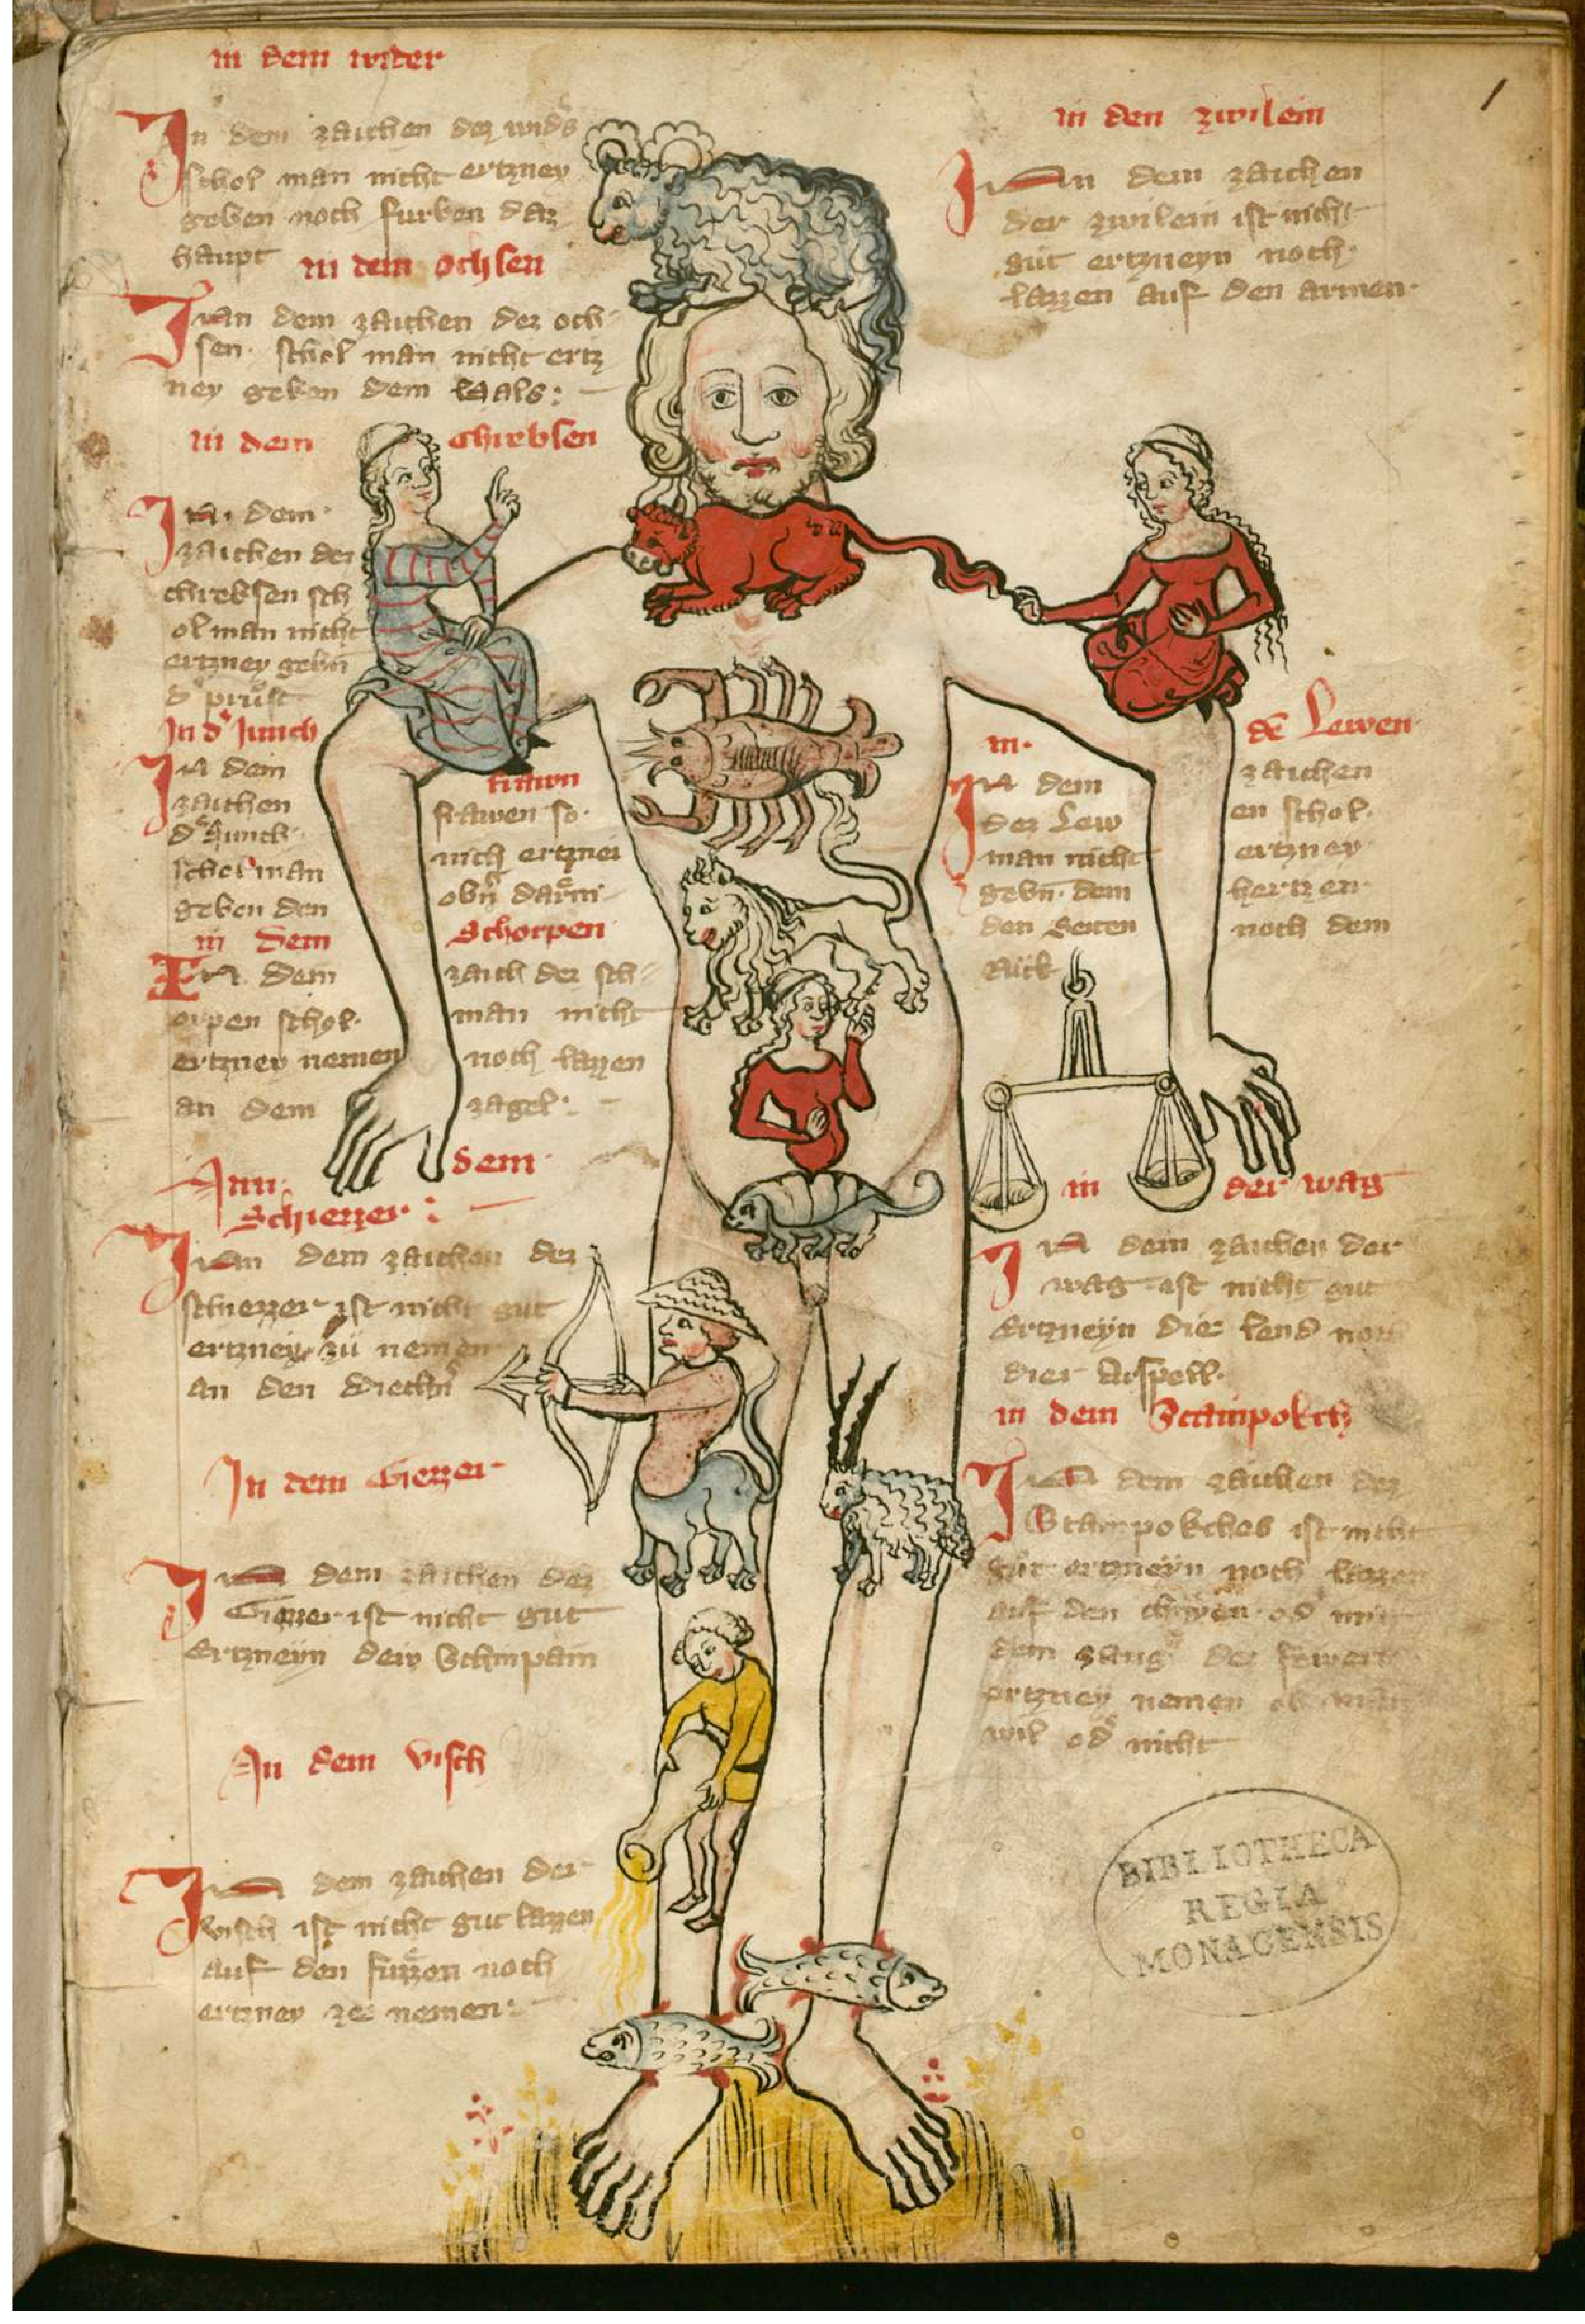 in dem wider
In dem zaichen dez wids
schol man nicht ertzney
geben noch furben daz
haupt
in dem ochsen
In dem zaichen dez och-
sen schol man nicht ertz
ney geben dem hals:
in dem chrebsen
In dem
zaichen dez
chrebsen sch
ol man nicht
ertzney gebn
d prust
In d Junch frawn
In dem
zaichen
d Junch frawen so
schol man nich ertznei
geben den obn darm
in dem Schorpen
In dem zaich der sch
orpen schol man nicht
ertzney nemen noch lazzen
an dem zagel
Inn dem
Schiezzer:
In dem zaichen dez
schiezzer ist nicht gut
ertzney zu nemen
an den diechn
In dem Giezzer
In dem zaichen dez
Giezzer ist nicht gut
Ertzneyn dew Schinpain
In dem visch
In dem zaichen der
visch ist nicht gut lazzen
auf den fuzzen noch
ertzney ze nemen:
1
in den zwilein
In dem zaichen
der zwilein ist nicht
gut ertzneyn noch
lazzen auf den armen
in de Lewen
In dem zaichen
dez Lew en schol
man nicht ertzney
gebn dem hertzen
den Seiten noch dem
Ruck
in der wag
In dem zaichen der
wag ist nicht gut
Ertzneyn die lend noch
die Arspell
in dem Stainpokch
In dem zaichen dez
Stainpokches ist nicht
gut ertzneyn noch lazzen
auf den chnyen od mit
dem
ertzney nemen ob man
wil od nicht
BIBLIOTHECA
REGIA
MONACENSIS